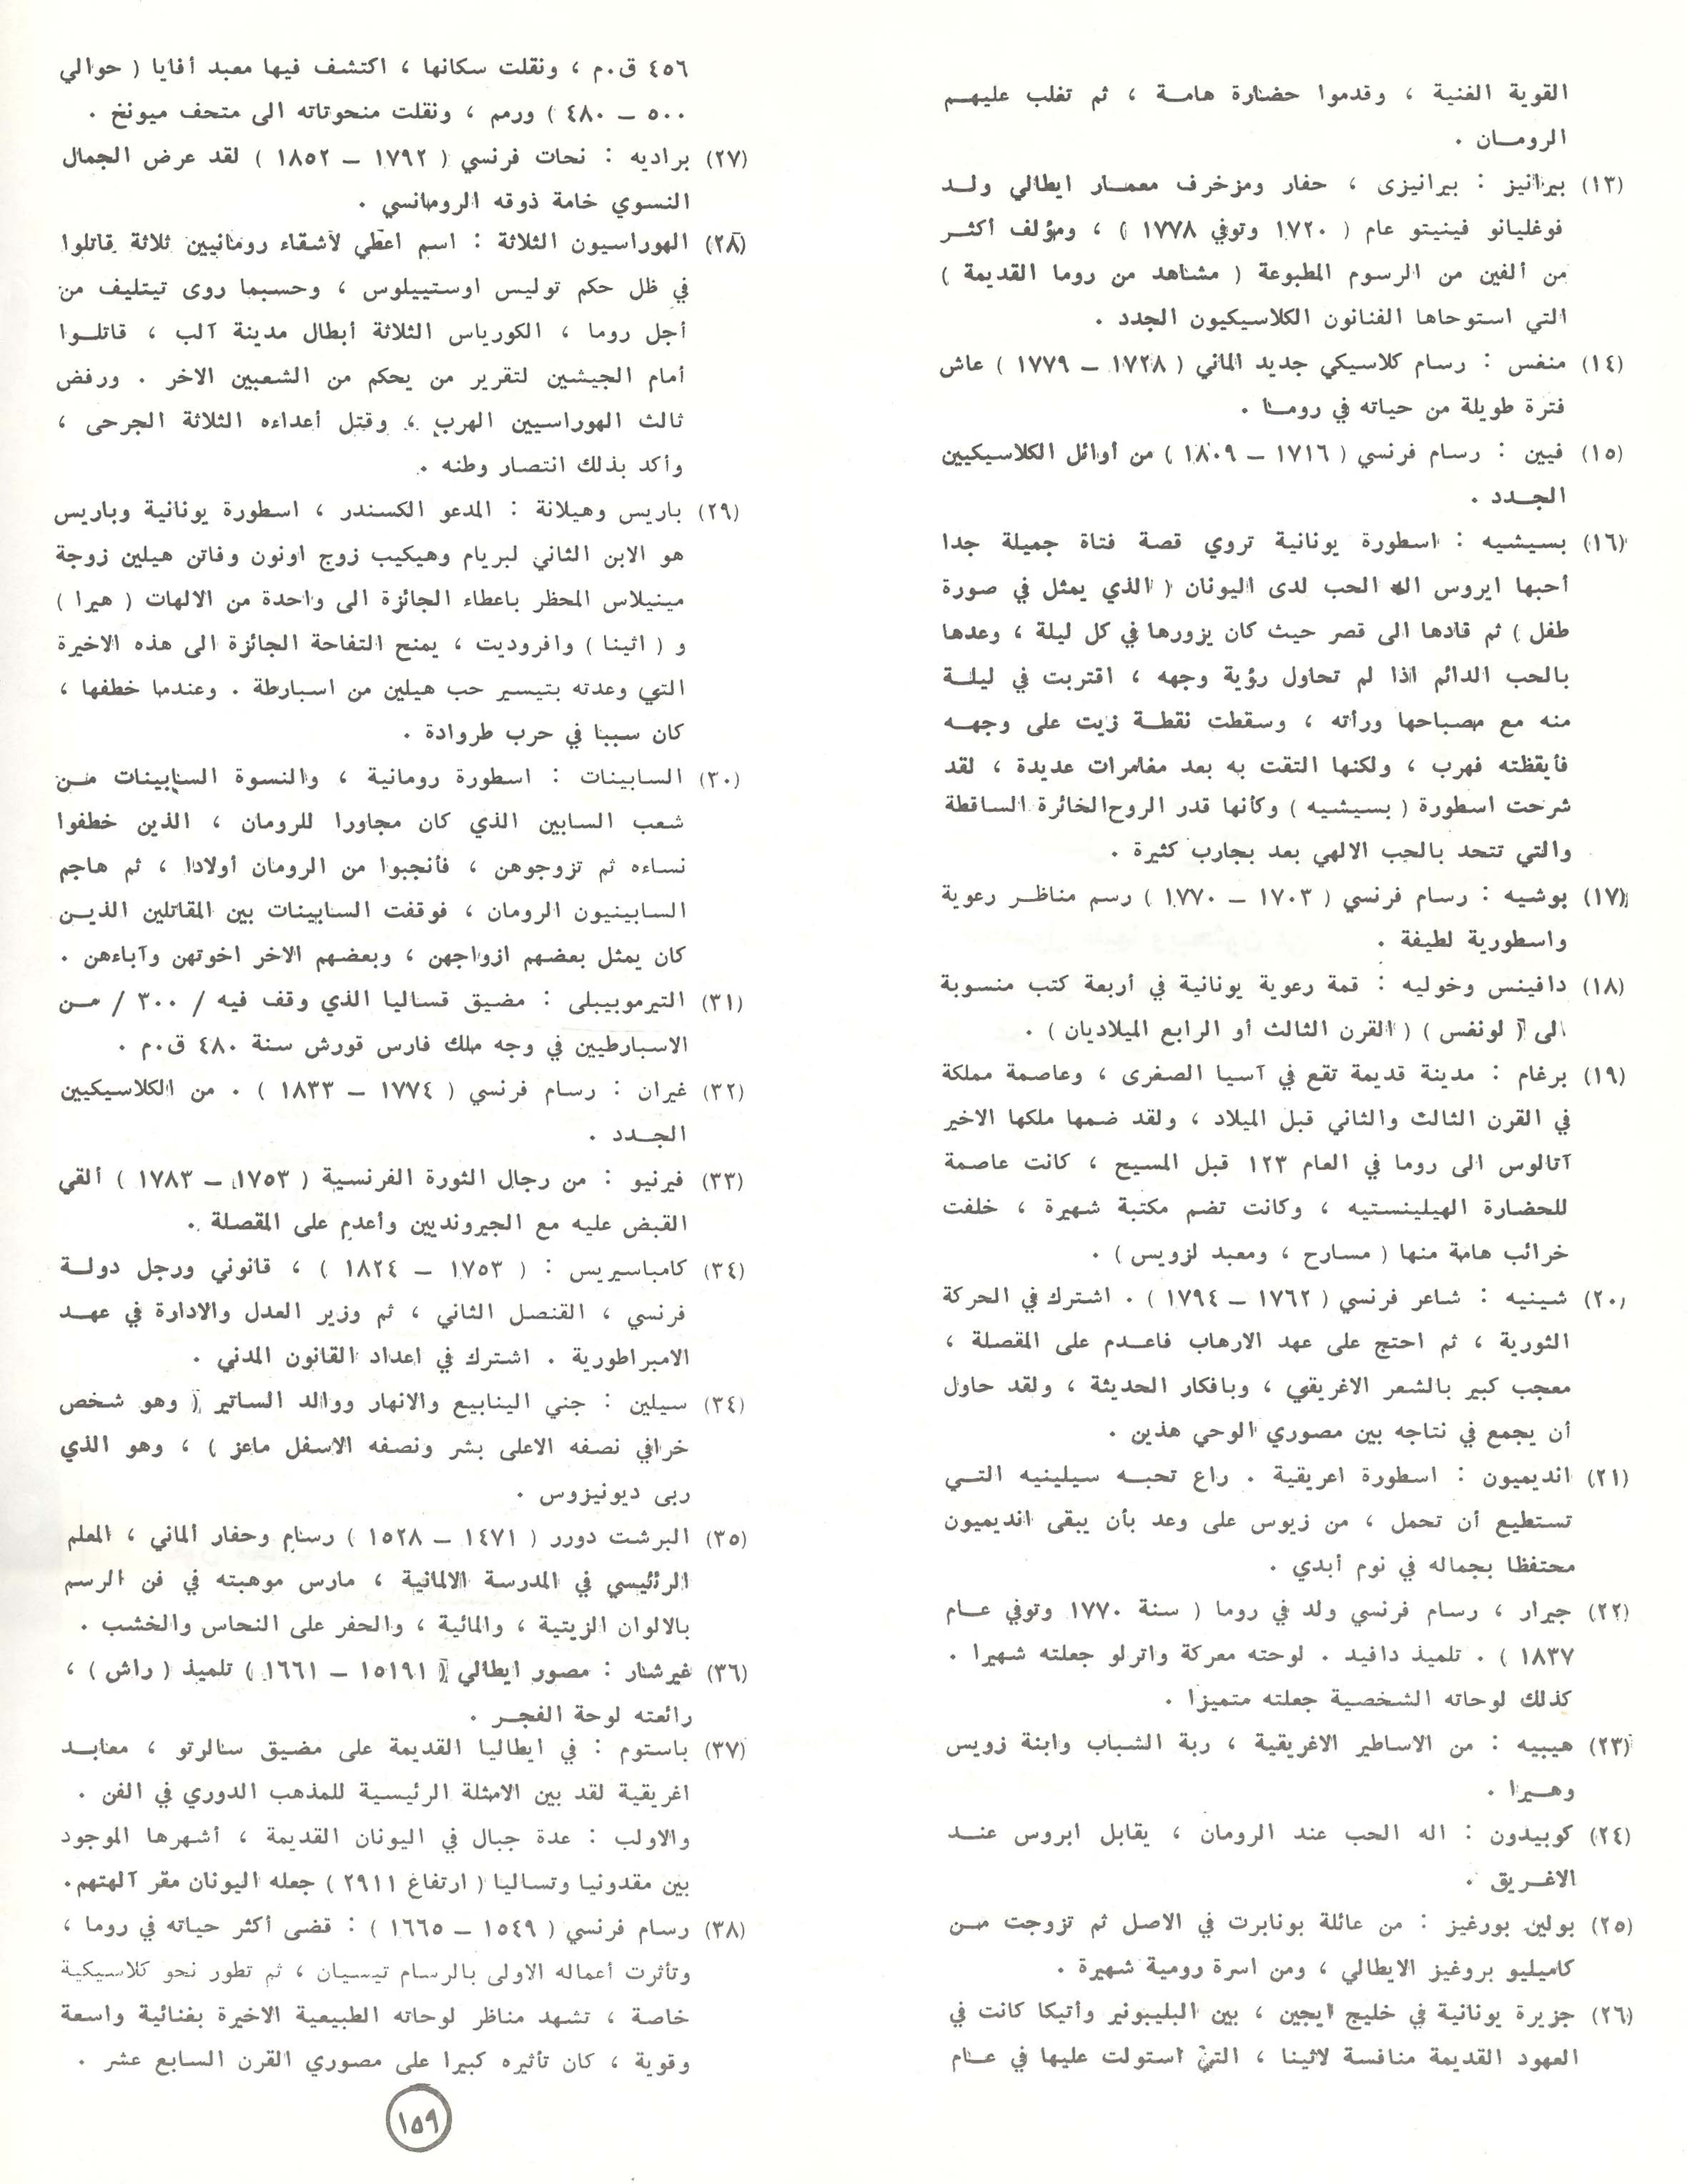 القوية الفنية ، وقدموا حضارة هامة ، ثم تغلب عليهم
الرومان .
(١٣) بيرانيز : بيرانيزى ، حفار ومزخرف معمار ايطالي ولد
فوغليانو فينيتو عام ( ١٧٢٠ وتوفي ١٧٧٨ ) ، ومؤلف أكثر
من ألفين من الرسوم المطبوعة ( مشاهد من روما القديمة )
التي استوحاها الفنانون الكلاسيكيون الجدد .
(١٤) منغس : رسام كلاسيكي جديد الماني ( ١٧٢٨ – ١٧٧٩ ) عاش
فترة طويلة من حياته في روما .
(١٥) فيين : رسام فرنسي ( ١٧١٦ – ١٨٠٩ ) من أوائل الكلاسيكيين
الجدد .
(١٦) بسيشيه : اسطورة يونانية تروي قصة فتاة جميلة جدا
أحبها ايروس اله الحب لدى اليونان ( الذي يمثل في صورة
طفل ) ثم قادها الى قصر حيث كان يزورها في كل ليلة ، وعدها
بالحب الدائم اذا لم تحاول رؤية وجهه ، اقتربت في ليلة
منه مع مصباحها ورأته ، وسقطت نقطة زيت على وجهه
فأيقظته فهرب ، ولكنها التقت به بعد مغامرات عديدة ، لقد
شرحت اسطورة ( بسيشيه ) وكأنها قدر الروح الخائرة الساقطة
والتي تتحد بالحب الالهي بعد بجارب كثيرة .
(١٧) بوشيه : رسام فرنسي ( ١٧٠٣ – ١٧٧٠ ) رسم مناظر رعوية
واسطورية لطيفة .
(١٨) دافينس وخوليه : قمة رعوية يونانية في أربعة كتب منسوبة
الى ( لونغس ) ( القرن الثالث أو الرابع الميلاديان ) .
(١٩) برغام : مدينة قديمة تقع في آسيا الصغرى ، وعاصمة مملكة
في القرن الثالث والثاني قبل الميلاد ، ولقد ضمها ملكها الاخير
آتالوس الى روما في العام ١٢٣ قبل المسيح ، كانت عاصمة
للحضارة الهيلينستيه ، وكانت تضم مكتبة شهيرة ، خلفت
خرائب هامة منها ( مسارح ، ومعبد لزويس ) .
(٢٠) شينيه : شاعر فرنسي ( ١٧٦٢ – ١٧٩٤ ) . اشترك في الحركة
الثورية ، ثم احتج على عهد الارهاب فاعدم على المقصلة ،
معجب كبير بالشعر الاغريقي ، وبافكار الحديثة ، ولقد حاول
أن يجمع في نتاجه بين مصوري الوحي هذين .
(٢١) انديميون : اسطورة اعريقية . راع تحبه سيلينيه التي
تستطيع أن تحمل ، من زيوس على وعد بأن يبقى انديميون
محتفظا بجماله في نوم أبدي .
(٢٢) جيرار ، رسام فرنسي ولد في روما ( سنة ١٧٧٠ وتوفي عام
١٨٣٧ ) . تلميذ دافيد . لوحته معركة واترلو جعلته شهيرا .
كذلك لوحاته الشخصية جعلته متميزا .
(٢٣) هيبيه : من الاساطير الاغريقية ، ربة الشباب وابنة زويس
وهيرا .
(٢٤) كوبيدون : اله الحب عند الرومان ، يقابل ابروس عند
الاغريق .
(٢٥) بولين بورغيز : من عائلة بونابرت في الاصل ثم تزوجت من
كاميليو بروغيز الايطالي ، ومن اسرة رومية شهيرة .
(٢٦) جزيرة يونانية في خليج ايجين ، بين البليبونير وأتيكا كانت في
العهود القديمة منافسة لاثينا ، التي استولت عليها في عام
٤٥٦ ق.م ، ونقلت سكانها ، اكتشف فيها معبد أفايا ( حوالي
٥٠٠ – ٤٨٠ ) ورمم ، ونقلت منحوتاته الى متحف ميونخ .
(٢٧) براديه : نحات فرنسي ( ١٧٩٢ – ١٨٥٢ ) لقد عرض الجمال
النسوي خامة ذوقه الرومانسي .
(٢٨) الهوراسيون الثلاثة : اسم اعطي لأشقاء رومانيين ثلاثة قاتلوا
في ظل حكم توليس اوستييلوس ، وحسبما روى تيتليف من
أجل روما ، الكورياس الثلاثة أبطال مدينة آلب ، قاتلوا
أمام الجيشين لتقرير من يحكم من الشعبين الاخر . ورفض
ثالث الهوراسيين الهرب ، وقتل أعداءه الثلاثة الجرحى ،
وأكد بذلك انتصار وطنه .
(٢٩) باريس وهيلانة : المدعو الكسندر ، اسطورة يونانية وباريس
هو الابن الثاني لبريام وهيكيب زوج اونون وفاتن هيلين زوجة
مينيلاس المحظر باعطاء الجائزة الى واحدة من الالهات ( هيرا )
و ( اثينا ) وافروديت ، يمنح التفاحة الجائزة الى هذه الاخيرة
التي وعدته بتيسير حب هيلين من اسبارطة . وعندما خطفها ،
كان سببا في حرب طروادة .
(٣٠) السابينات : اسطورة رومانية ، والنسوة السابينات من
شعب السابين الذي كان مجاورا للرومان ، الذين خطفوا
نساءه ثم تزوجوهن ، فأنجبوا من الرومان أولادا ، ثم هاجم
السابينيون الرومان ، فوقفت السابينات بين المقاتلين الذين
كان يمثل بعضهم ازواجهن ، وبعضهم الاخر اخوتهن وآباءهن .
(٣١) التيرموبيبلى : مضيق قساليا الذي وقف فيه / ٣٠٠ / من
الاسبارطيين في وجه ملك فارس قورش سنة ٤٨٠ ق.م .
(٣٢) غيران : رسام فرنسي ( ١٧٧٤ – ١٨٣٣ ) . من الكلاسيكيين
الجدد .
(٣٣) فيرنيو : من رجال الثورة الفرنسية ( ١٧٥٣ – ١٧٨٣ ) ألقي
القبض عليه مع الجيرونديين وأعدم على المقصلة .
(٣٤) كامباسيريس : ( ١٧٥٣ – ١٨٢٤ ) ، قانوني ورجل دولة
فرنسي ، القنصل الثاني ، ثم وزير العدل والادارة في عهد
الامبراطورية . اشترك في اعداد القانون المدني .
(٣٤) سيلين : جني الينابيع والانهار ووالد الساتير ( وهو شخص
خرافي نصفه الاعلى بشر ونصفه الاسفل ماعز ) ، وهو الذي
ربى ديونيزوس .
(٣٥) البرشت دورر ( ١٤٧١ – ١٥٢٨ ) رسام وحفار ألماني ، المعلم
الرئيسي في المدرسة الالمانية ، مارس موهبته في فن الرسم
بالالوان الزيتية ، والمائية ، والحفر على النحاس والخشب .
(٣٦) غيرشنار : مصور ايطالي ( ١٥١٩١ – ١٦٦١ ) تلميذ ( راش ) ،
رائعته لوحة الفجر .
(٣٧) باستوم : في ايطاليا القديمة على مضيق سالرتو ، معابد
اغريقية لقد بين الامثلة الرئيسية للمذهب الدوري في الفن .
والاولب : عدة جبال في اليونان القديمة ، أشهرها الموجود
بين مقدونيا وتساليا ( ارتفاع ٢٩١١ ) جعله اليونان مقر آلهتهم .
(٣٨) رسام فرنسي ( ١٥٤٩ – ١٦٦٥ ) : قضى أكثر حياته في روما ،
وتأثرت أعماله الاولى بالرسام تيسيان ، ثم تطور نحو كلاسيكية
خاصة ، تشهد مناظر لوحاته الطبيعية الاخيرة بغنائية واسعة
وقوية ، كان تأثيره كبيرا على مصوري القرن السابع عشر .
١٥٩